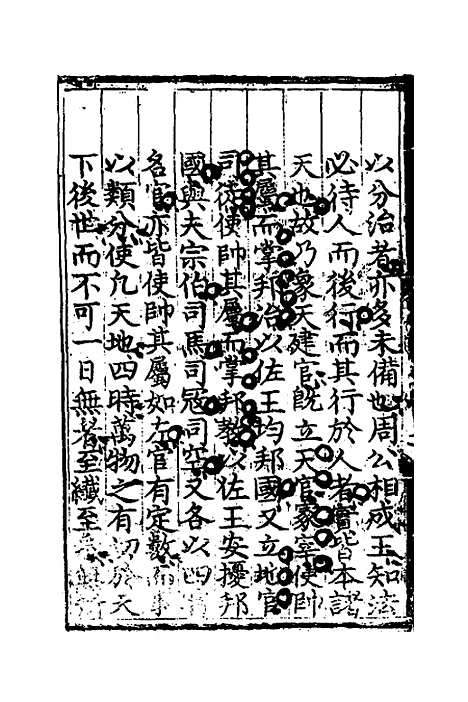 以分治者亦多未備也周公相成王知法
必待人而後行而其行於人者實皆本諸
天也故乃象天建官旣立天官冢宰使帥
其屬而掌邦治以佐王均邦國又立地官
司徒使帥其屬而掌邦敎以佐王安擾邦
國與夫宗伯司馬司冦司空又各以四
名官亦皆使帥其屬如左官有定數
以類分使凡天地四時萬物之有切於天
下後世而不可一日無者至纖至